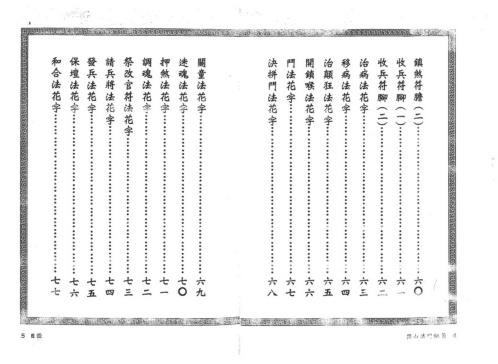 鎮煞符膽（二）……六〇
收兵符腳（一）……六一
收兵符腳（二）……六二
治病法花字……六三
移病法花字……六四
治顛狂法花字……六五
開鎖喉法花字……六六
鬥法花字……六七
決拼鬥法花字……六八
關童法花字……六九
迷魂法花字……七〇
押煞法花字……七一
調魂法花字……七二
祭改官符法花字……七三
請兵將法花字……七四
發兵法花字……七五
保壇法花字……七六
和合法花字……七七
5 目錄